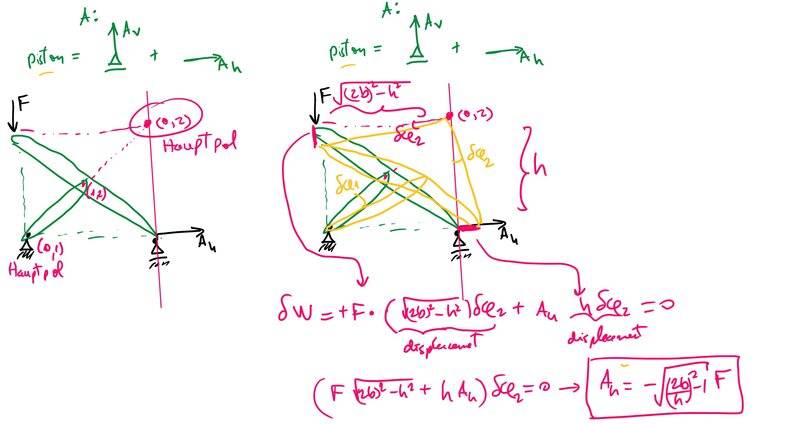 A:
A_v
piston = + A_h
F
(0,2)
Hauptpol
(1,2)
(0,1)
Hauptpol
A_h
A:
A_v
piston = + A_h
F √((2b)²-h²)
(0,2)
δφ₂
δφ₂
h
δφ₁
A_h
δW = +F · (√((2b)²-h²))δφ₂ + A_h h δφ₂ = 0
displacement
displacement
(F √((2b)²-h²) + h A_h) δφ₂ = 0 → A_h = -√((2b/h)²-1) F